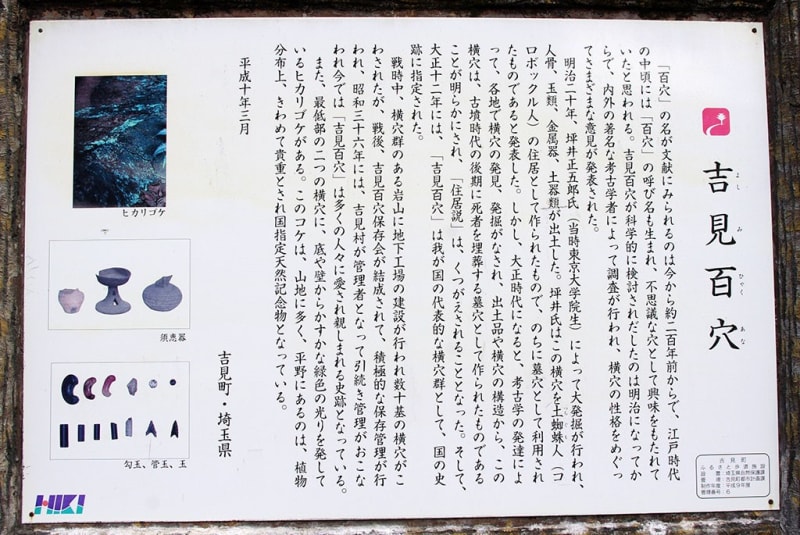 吉見百穴
よしみひゃくあな
「百穴」の名が文献にみられるのは今から約二百年前からで、江戸時代
の中頃には「百穴」の呼び名も生まれ、不思議な穴として興味をもたれて
いたと思われる。吉見百穴が科学的に検討されだしたのは明治になってか
らで、内外の著名な考古学者によって調査が行われ、横穴の性格をめぐっ
てさまざまな意見が発表された。
明治二十年、坪井正五郎氏(当時東京大学院生)によって大発掘が行われ、
人骨、玉類、金属器、土器類が出土した。坪井氏はこの横穴を土蜘蛛人(コ
ロボックル人)の住居として作られたもので、のちに墓穴として利用され
たものであると発表した。しかし、大正時代になると、考古学の発達によ
って、各地で横穴の発見、発掘がなされ、出土品や横穴の構造から、この
横穴は、古墳時代の後期に死者を埋葬する墓穴として作られたものである
ことが明らかにされ、「住居説」は、くつがえされることとなった。そして、
大正十二年には、「吉見百穴」は我が国の代表的な横穴群として、国の史
跡に指定された。
戦時中、横穴群のある岩山に地下工場の建設が行われ数十基の横穴がこ
わされたが、戦後、吉見百穴保存会が結成されて、積極的な保存管理が行
われ、昭和三十六年には、吉見村が管理者となって引続き管理がおこな
われ今では「吉見百穴」は多くの人々に愛され親しまれる史跡となっている。
また、最低部の二つの横穴に、底や壁からかすかな緑色の光りを発して
いるヒカリゴケがある。このコケは、山地に多く、平野にあるのは、植物
分布上、きわめて貴重とされ国指定天然記念物となっている。
平成十年三月
吉見町・埼玉県
ヒカリゴケ
須恵器
勾玉、管玉、玉
HIKI
吉見町
ふるさと歩道施設
設置:埼玉県自然保護課
管理:吉見町都市計画課
制作年度:平成9年度
管理番号:6